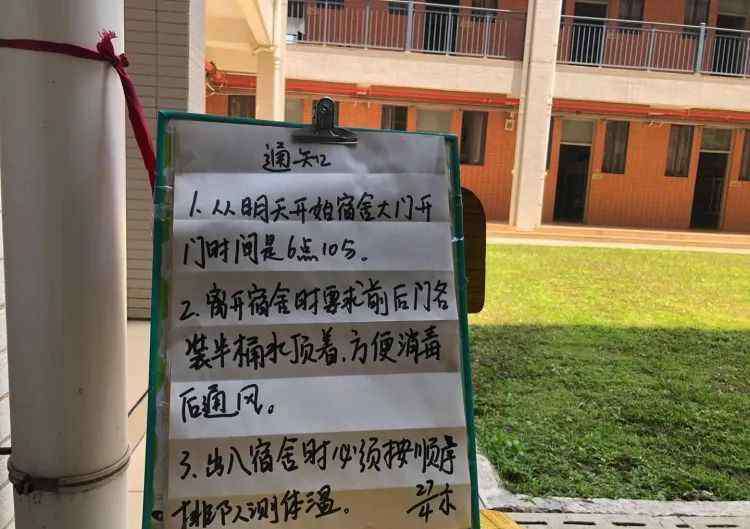 通知
1、从明天开始宿舍大门开
门时间是6点10分。
2、离开宿舍时要求前后门各
装半桶水顶着、方便消毒
后通风。
3、出入宿舍时必须按顺序
排队测体温。 27/4